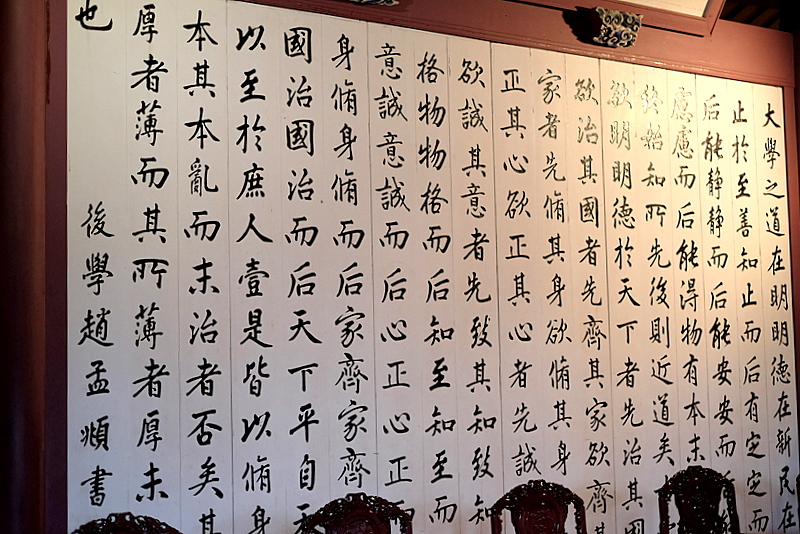 大學之道在明明德在新民在
止於至善知止而后有定定而
后能静静而后能安安而
慮慮而后能得物有本末
終始知所先後則近道矣
欲明明德於天下者先治其國
欲治其國者先齊其家欲齊其
家者先脩其身欲脩其身
正其心欲正其心者先誠
欲誠其意者先致其知致知
格物物格而后知至知至而
意誠意誠而后心正心正而
身脩身脩而后家齊家齊
國治國治而后天下平自天
以至於庶人壹是皆以脩身
本其本亂而末治者否矣其
厚者薄而其所薄者厚未
也
後學趙孟頫書